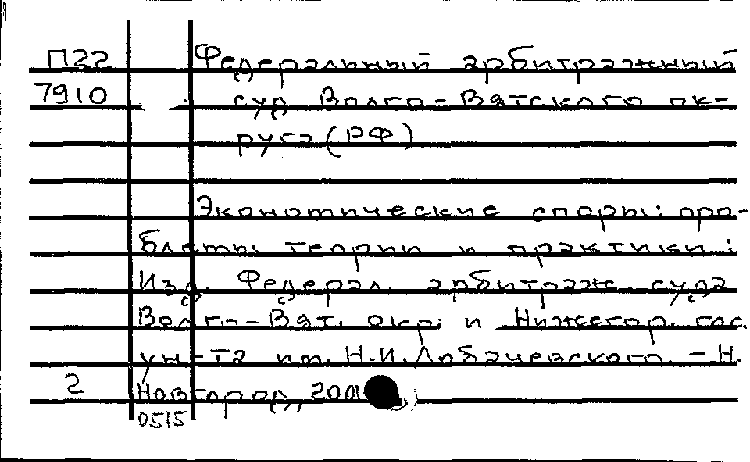 П22 Федеральный арбитражный
7910 суд Волго-Вятского ок-
руга (РФ)
Экономические споры: про-
блемы теории и практики:
Изд. Федерал. арбитраж. суда
Волго-Вят. окр. и Нижегор. гос.
ун-та им. Н.И. Лобачевского. - Н.
2 Новгород,
0515